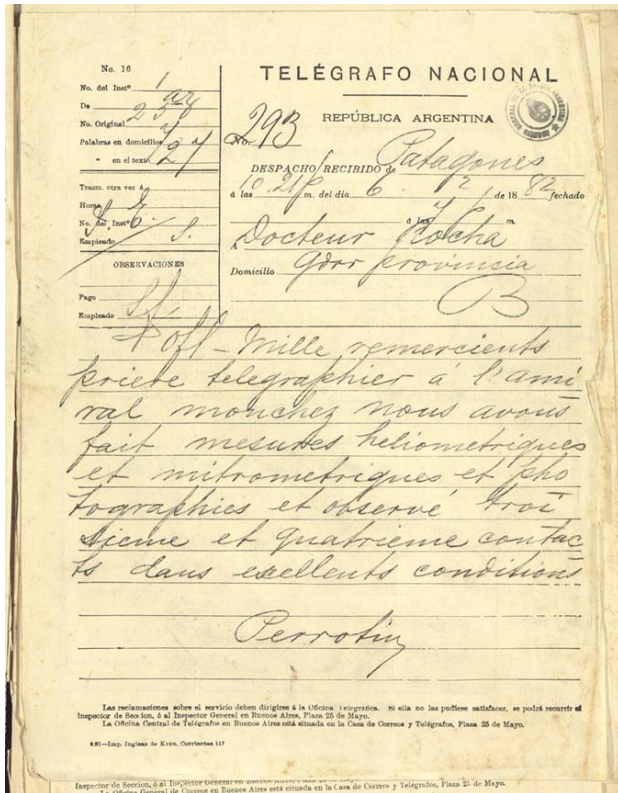 No. 16
No. del Instº 1
De
No. Original
Palabras en domicilio
" en el texto 27
Trasm. otra vez á
Hora
No. del Instº 6.
Empleado S.
OBSERVACIONES
Pago
Empleado
TELÉGRAFO NACIONAL
REPÚBLICA ARGENTINA
No. 293
DESPACHO RECIBIDO de Patagones
á las 10.21 p m. del dia 6 de 1882 fechado
á las m.
A Docteur Rocha
Domicilio Gdor provincia
B
Off - Mille remercients
priere telegraphier á l'ami
ral mouchez nous avons
fait mesures heliometriques
et mitrometriques et pho
tographies et observé troi
sieme et quatrieme contac
ts dans excellents conditions
Perrotin
Las reclamaciones sobre el servicio deben dirigirse á la Oficina Telegráfica. Si ella no las pudiese satisfacer, se podrá recurrir al
Inspector de Seccion, ó al Inspector General en Buenos Aires, Plaza 25 de Mayo.
La Oficina Central de Telégrafos en Buenos Aires está situada en la Casa de Correos y Telégrafos, Plaza 25 de Mayo.
Imp. Inglesa de Kidd, Corrientes 117
Inspector de Seccion, ó al Inspector General en Buenos Aires,
La Oficina General de Correos en Buenos Aires está situada en la Casa de Correos y Telégrafos, Plaza 25 de Mayo.